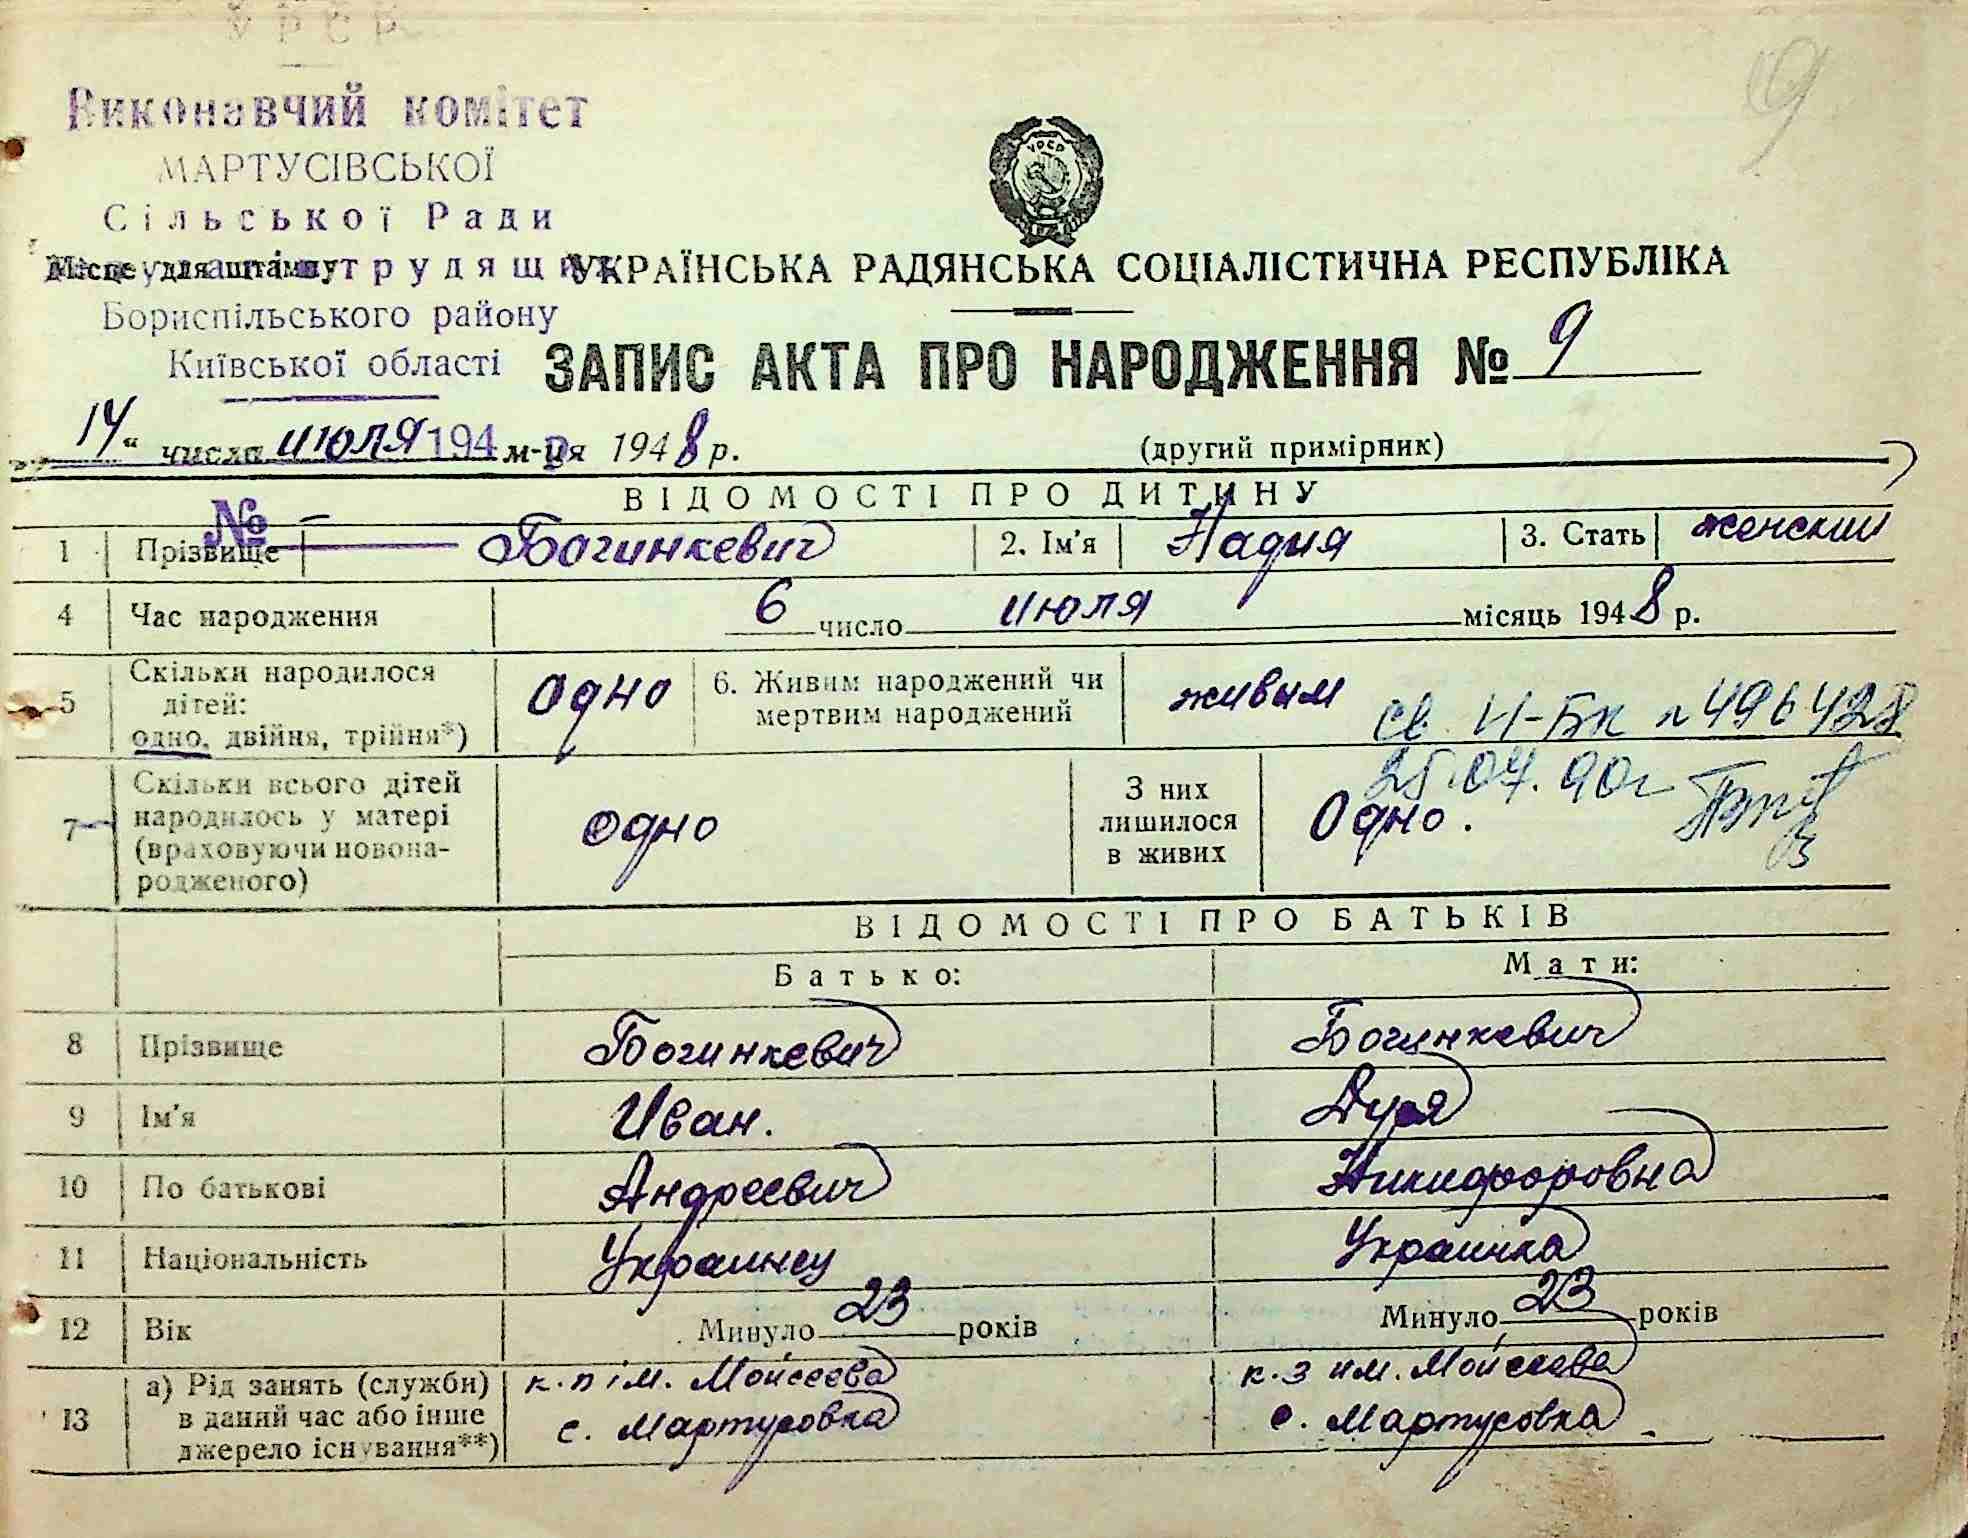 УРСР
9
Виконавчий комітет
МАРТУСІВСЬКОЇ
Сільської Ради
Місце для штампу трудящих
УРСР
УКРАЇНСЬКА РАДЯНСЬКА СОЦІАЛІСТИЧНА РЕСПУБЛІКА
Бориспільського району
Київської області
ЗАПИС АКТА ПРО НАРОДЖЕННЯ № 9
14 " числа июля 194 м-ця 1948 р.
(другий примірник)
ВІДОМОСТІ ПРО ДИТИНУ
№ –
1 Прізвище Богинкевич 2. Ім'я Надия 3. Стать женский
4 Час народження 6 число июля місяць 1948 р.
5 Скільки народилося дітей: одно, двійня, трійня*) Одно 6. Живим народжений чи мертвим народжений живым
св. И-БК № 496428
25.07.90г
7 Скільки всього дітей народилось у матері (враховуючи новонародженого) одно З них лишилося в живих Одно.
ВІДОМОСТІ ПРО БАТЬКІВ
Батько: Мати:
8 Прізвище Богинкевич Богинкевич
9 Ім'я Иван. Дуся
10 По батькові Андреевич Никифоровна
11 Національність Украинец Украинка
12 Вік Минуло 23 років Минуло 23 років
13 а) Рід занять (служби) в даний час або інше джерело існування**) к.п ім. Мойсеева с. Мартусовка к.з им. Мойсеева с. Мартусовка